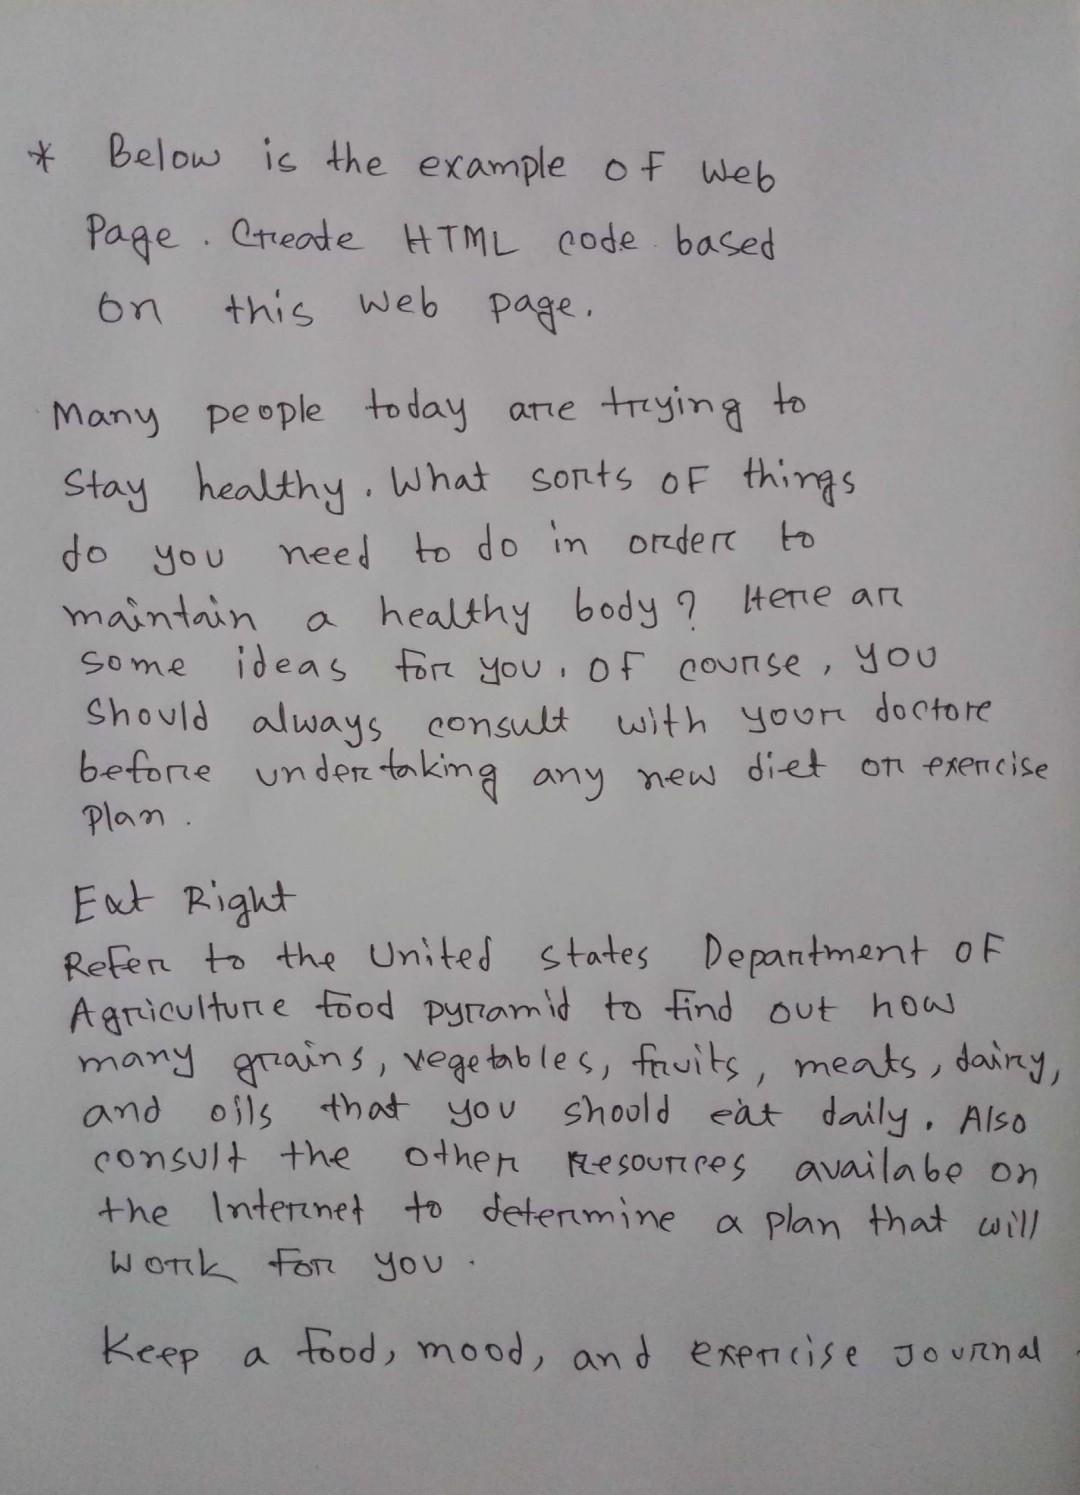 * Below is the example of web
Page. Create HTML code based
on this web page.
Many people today are trying to
Stay healthy. What sorts of things
do you need to do in order to
maintain a healthy body? Here ar
some ideas for you. Of course, you
Should always consult with your doctore
before undertaking any new diet or exercise
Plan.
Eat Right
Refer to the United states Department of
Agriculture food pyramid to find out how
many grains, vegetables, fruits, meats, dairy,
and oils that you should eat daily. Also
consult the other Resources availabe on
the Internet to determine a plan that will
work for you.
Keep a food, mood, and exercise Journal